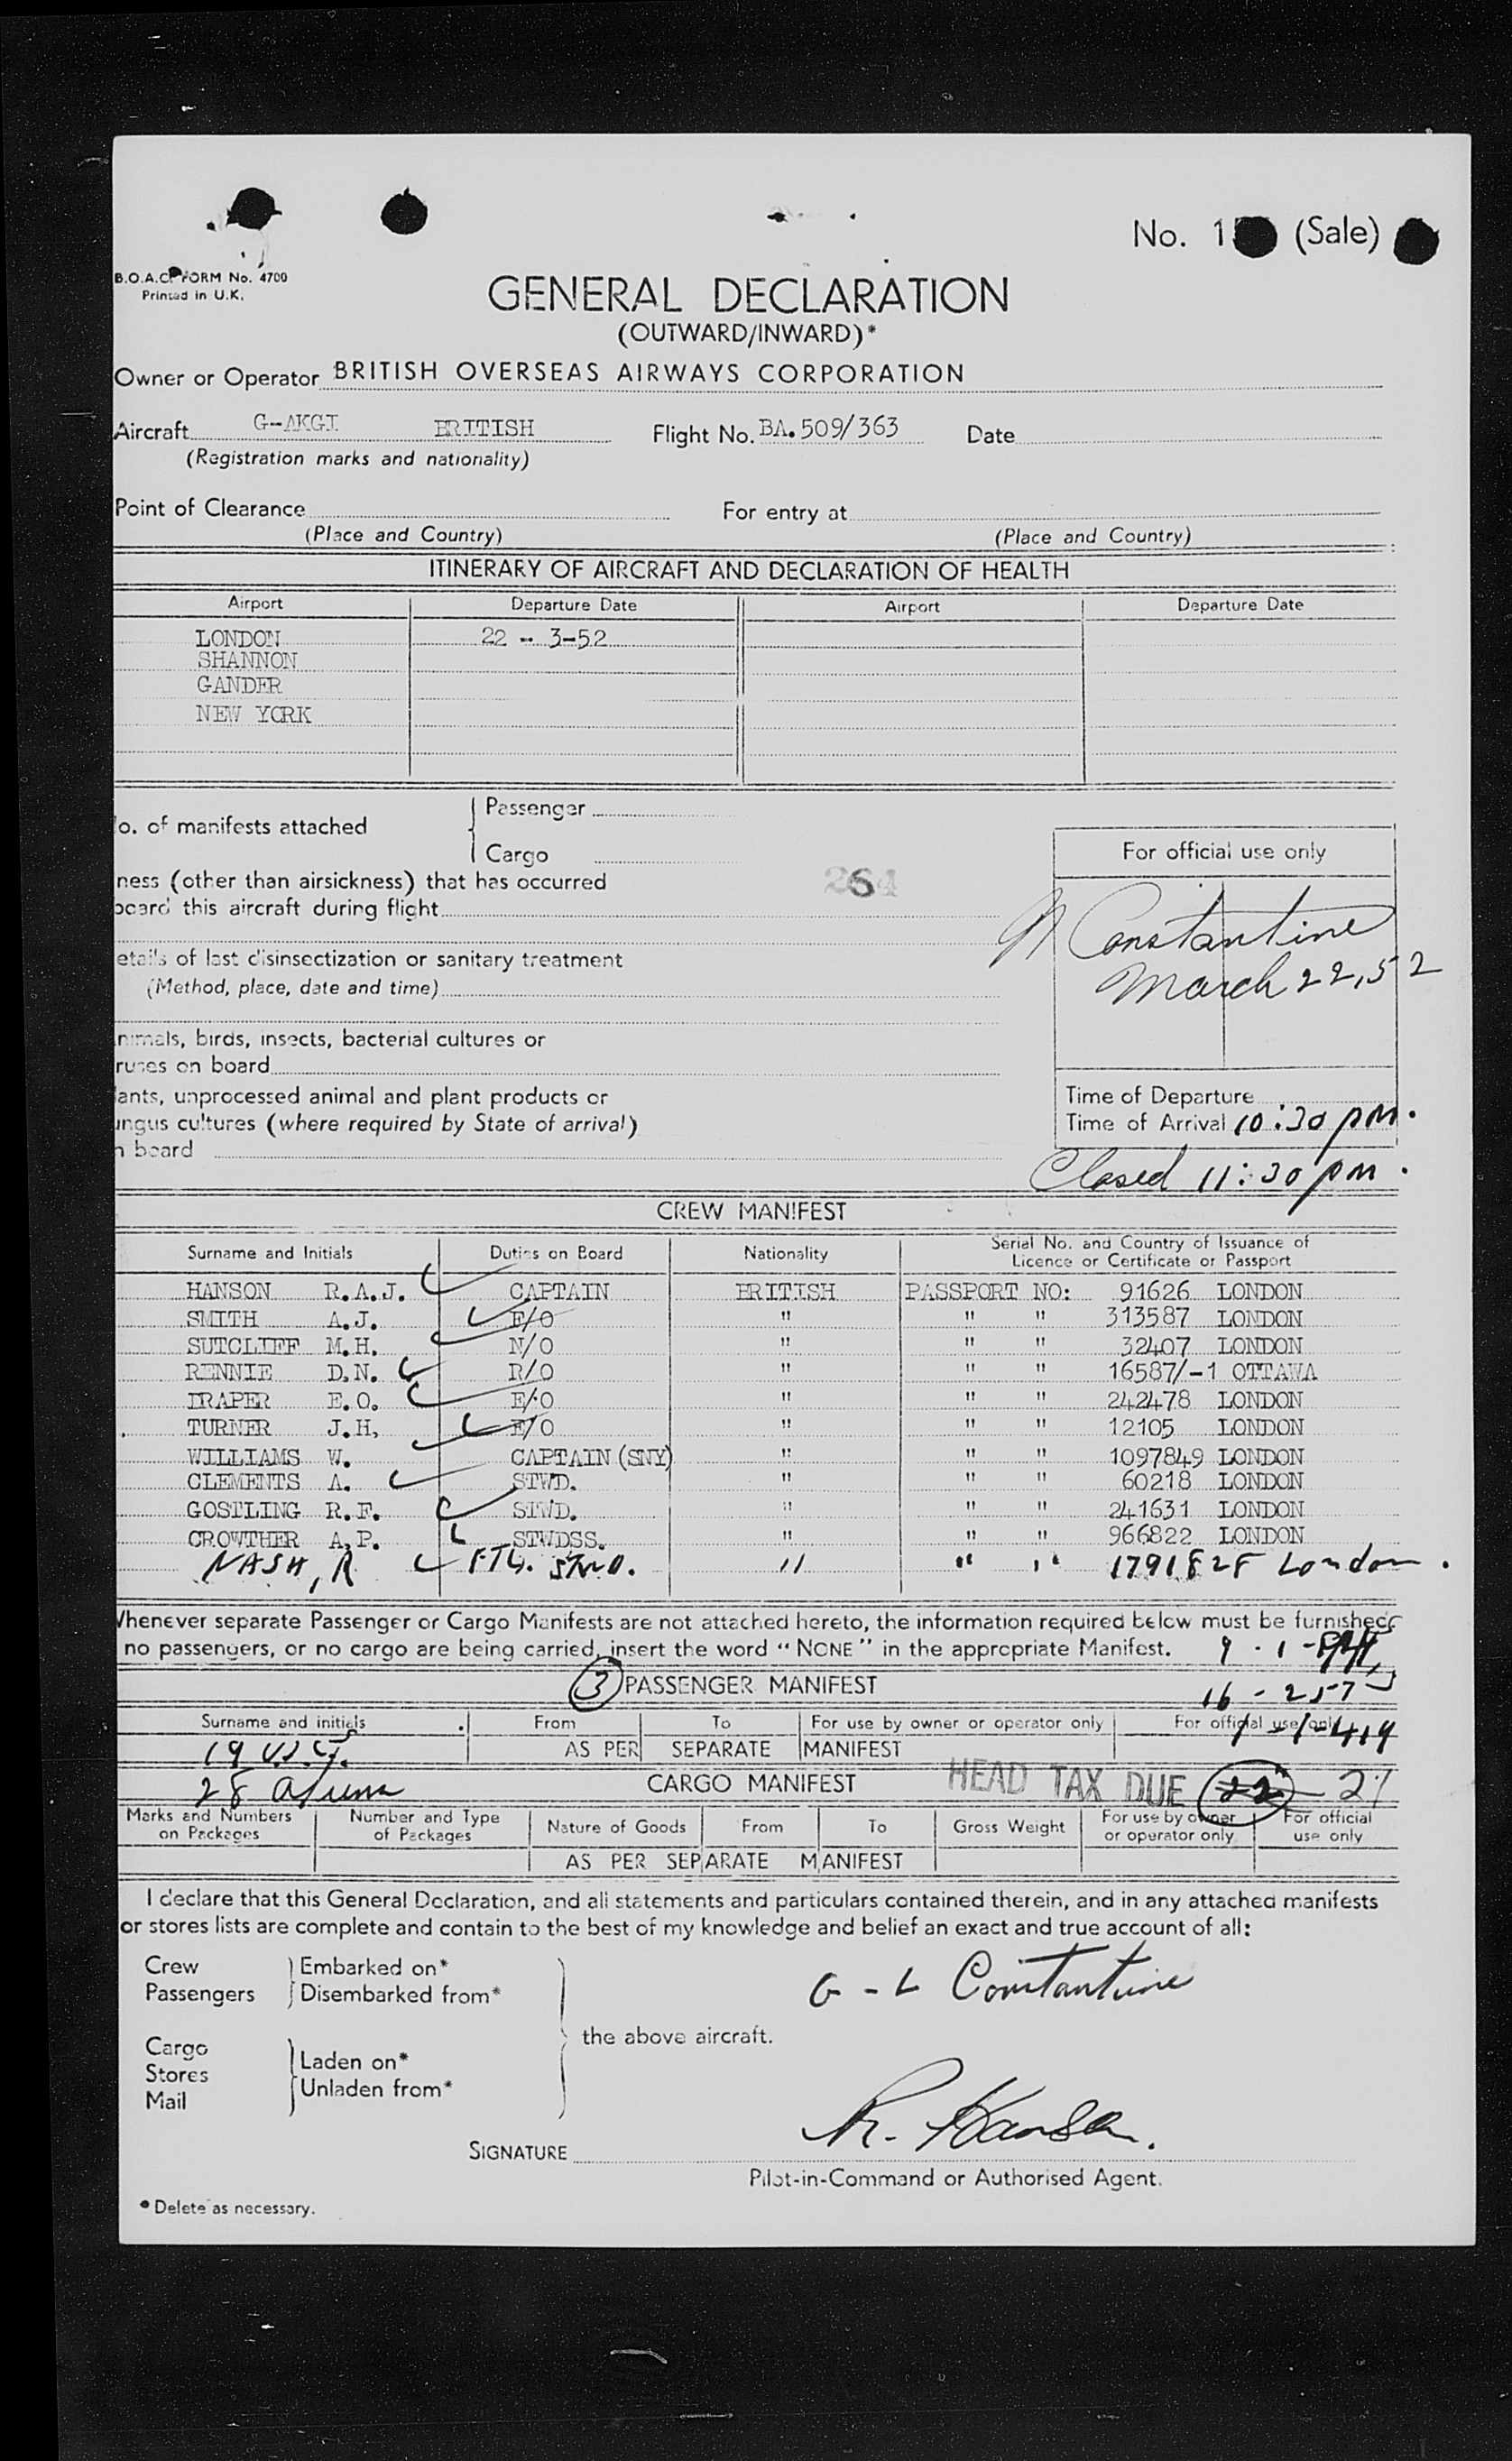 No. 1 (Sale)
B.O.A.C. FORM No. 4700
Printed in U.K.
GENERAL DECLARATION
(OUTWARD/INWARD)*
Owner or Operator BRITISH OVERSEAS AIRWAYS CORPORATION
Aircraft G-AKGI BRITISH Flight No. BA.509/363 Date
(Registration marks and nationality)
Point of Clearance For entry at
(Place and Country) (Place and Country)
ITINERARY OF AIRCRAFT AND DECLARATION OF HEALTH
Airport Departure Date Airport Departure Date
LONDON 22 - 3-52
SHANNON
GANDER
NEW YORK
Passenger
o. of manifests attached
Cargo
For official use only
ness (other than airsickness) that has occurred 264
board this aircraft during flight
Constantine
March 22, 52
etails of last disinsectization or sanitary treatment
(Method, place, date and time)
nimals, birds, insects, bacterial cultures or
ruses on board
lants, unprocessed animal and plant products or
ungus cultures (where required by State of arrival)
n board
Time of Departure
Time of Arrival 10:30 pm.
Closed 11:30 pm.
CREW MANIFEST
Surname and Initials Duties on Board Nationality Serial No. and Country of Issuance of
Licence or Certificate or Passport
HANSON R.A.J. CAPTAIN BRITISH PASSPORT NO: 91626 LONDON
SMITH A.J. F/O " " " 313587 LONDON
SUTCLIFF M.H. N/O " " " 32407 LONDON
RENNIE D.N. R/O " " " 16587/-1 OTTAWA
DRAPER E.O. E/O " " " 242478 LONDON
TURNER J.H, E/O " " " 12105 LONDON
WILLIAMS W. CAPTAIN (SNY) " " " 1097849 LONDON
CLEMENTS A. STWD. " " " 60218 LONDON
GOSTLING R.F. STWD. " " " 241631 LONDON
CROWTHER A.P. STWDSS. " " " 966822 LONDON
NASH, R FTG. STWD. " " " London.
Whenever separate Passenger or Cargo Manifests are not attached hereto, the information required below must be furnished
no passengers, or no cargo are being carried, insert the word "NONE" in the appropriate Manifest. 9 - 1 -
3 PASSENGER MANIFEST 16 - 257
Surname and initials From To For use by owner or operator only For official use only
19 AS PER SEPARATE MANIFEST
28 CARGO MANIFEST HEAD TAX DUE 22 21
Marks and Numbers on Packages Number and Type of Packages Nature of Goods From To Gross Weight For use by owner or operator only For official use only
AS PER SEPARATE MANIFEST
I declare that this General Declaration, and all statements and particulars contained therein, and in any attached manifests
or stores lists are complete and contain to the best of my knowledge and belief an exact and true account of all:
Crew Embarked on*
Passengers Disembarked from*
G - L Constantine
the above aircraft.
Cargo
Stores Laden on*
Mail Unladen from*
R. Hanson.
SIGNATURE
Pilot-in-Command or Authorised Agent.
* Delete as necessary.